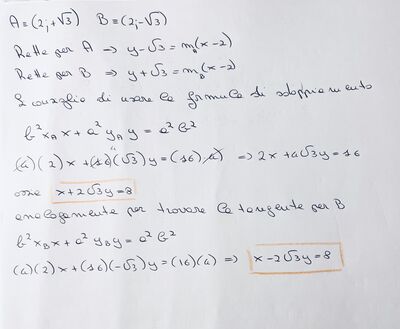 A=(2;+√3) B=(2;-√3)
Rette per A ⇒ y-√3=m_A(x-2)
Rette per B ⇒ y+√3=m_B(x-2)
Consiglio di usare le formule di sdoppiamento
b²x_A x+a² y_A y=a²b²
(4)(2)x+(16)(√3)y=(16)(4) ⇒ 2x+4√3y=16
ossia x+2√3y=8
analogamente per trovare la tangente per B
b²x_B x+a² y_B y=a²b²
(4)(2)x+(16)(-√3)y=(16)(4) ⇒ x-2√3y=8